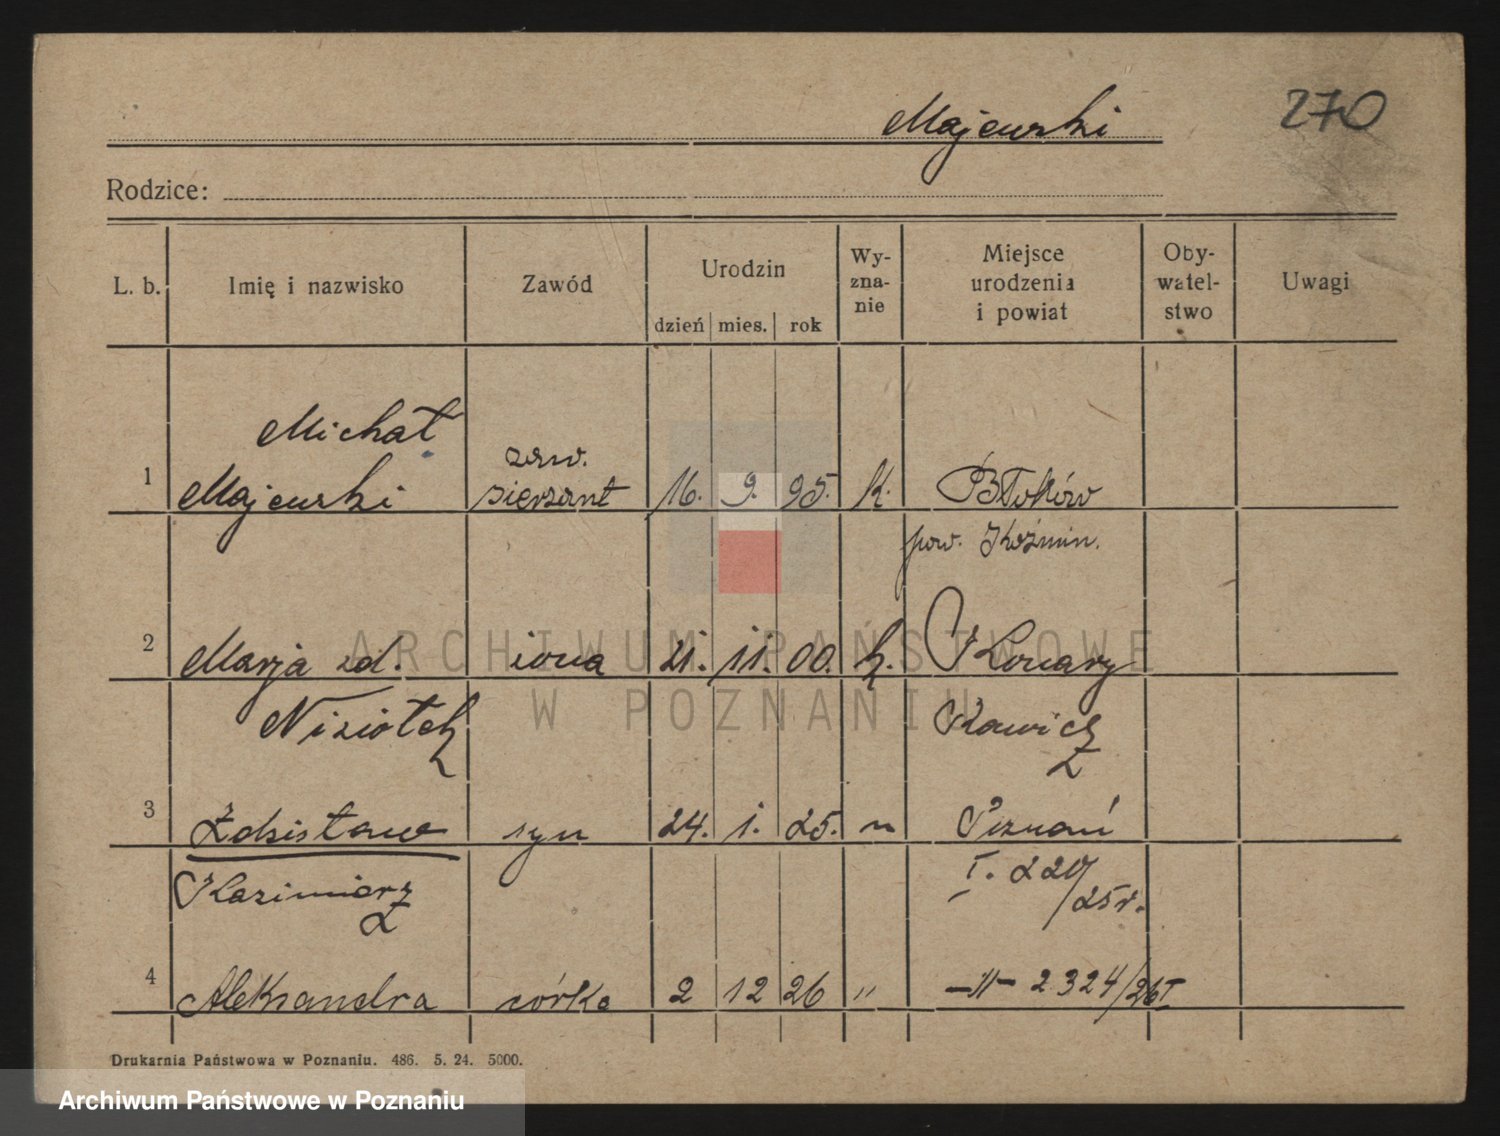 Majewski
270
Rodzice:
L. b. Imię i nazwisko Zawód Urodzin dzień mies. rok Wy-zna-nie Miejsce urodzenia i powiat Oby-watel-stwo Uwagi
Michał
zaw.
1 Majewski sierżant 16. 9. 95. k. Błoków
pow. Koźmin.
2 Marja zd. żona 21. 11. 00. k. Konary
Niziołek Rawicz
3 Zdzisław syn 24. 1. 25. " Poznań
Kazimierz I. 220/25r.
4 Aleksandra córka 2 12 26 " -"- 2324/26 I
Drukarnia Państwowa w Poznaniu. 486. 5. 24. 5000.
ARCHIWUM PAŃSTWOWE
W POZNANIU
Archiwum Państwowe w Poznaniu